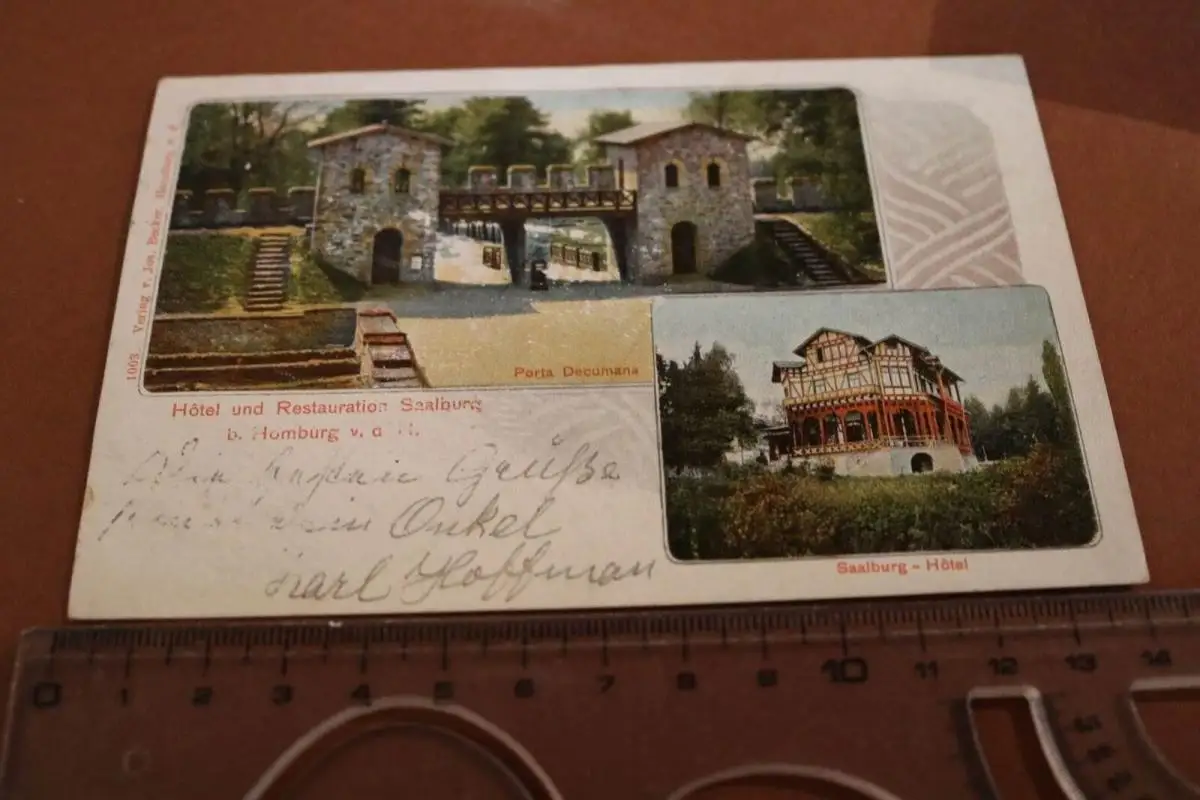 1003 Verlag v. Jos. Becker Homburg v. d.
Porta Decumana
Hôtel und Restauration Saalburg
b. Homburg v. d H.
Grüße
Onkel
Karl Hoffman
Saalburg - Hôtel
0 1 2 3 4 5 6 7 8 9 10 11 12 13 14